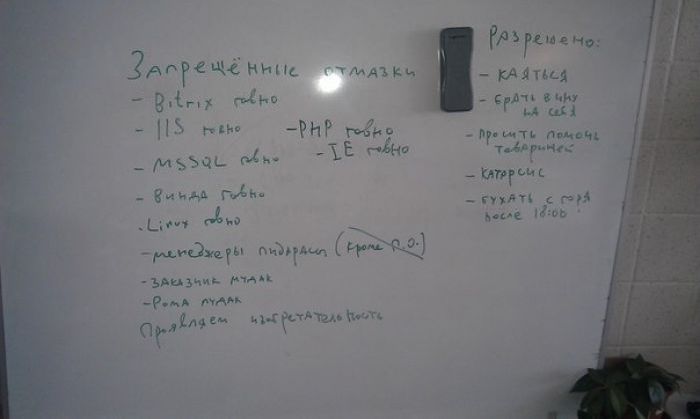 Запрещённые отмазки
- Bitrix говно
- IIS говно
- PHP говно
- MSSQL говно
- IE говно
- Винда говно
. Linux говно
- менеджеры пидарасы (кроме П.О.)
- заказчик мудак
- Рома мудак
Проявляем изобретательность
Разрешено:
- каяться
- брать вину
на себя
- просить помочь
товарищей
- катарсис
- бухать с горя
после 18:00